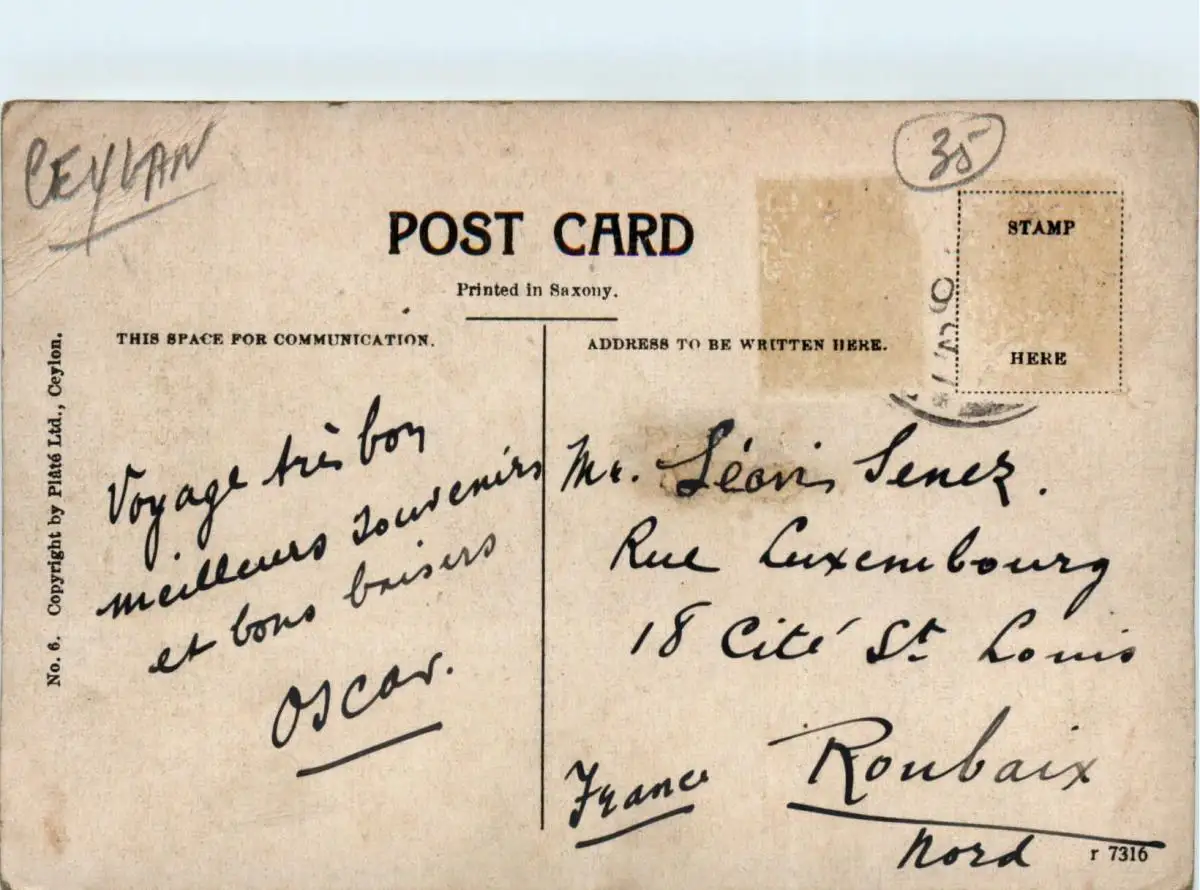 CEYLAN
35
POST CARD
Printed in Saxony.
STAMP
HERE
THIS SPACE FOR COMMUNICATION.
ADDRESS TO BE WRITTEN HERE.
No. 6. Copyright by Plâté Ltd., Ceylon.
Voyage très bon
meilleurs souvenirs
et bons baisers
Oscar.
Mr. Senez.
Rue Luxembourg
18 Cité St Louis
Roubaix
France
Nord
r 7316